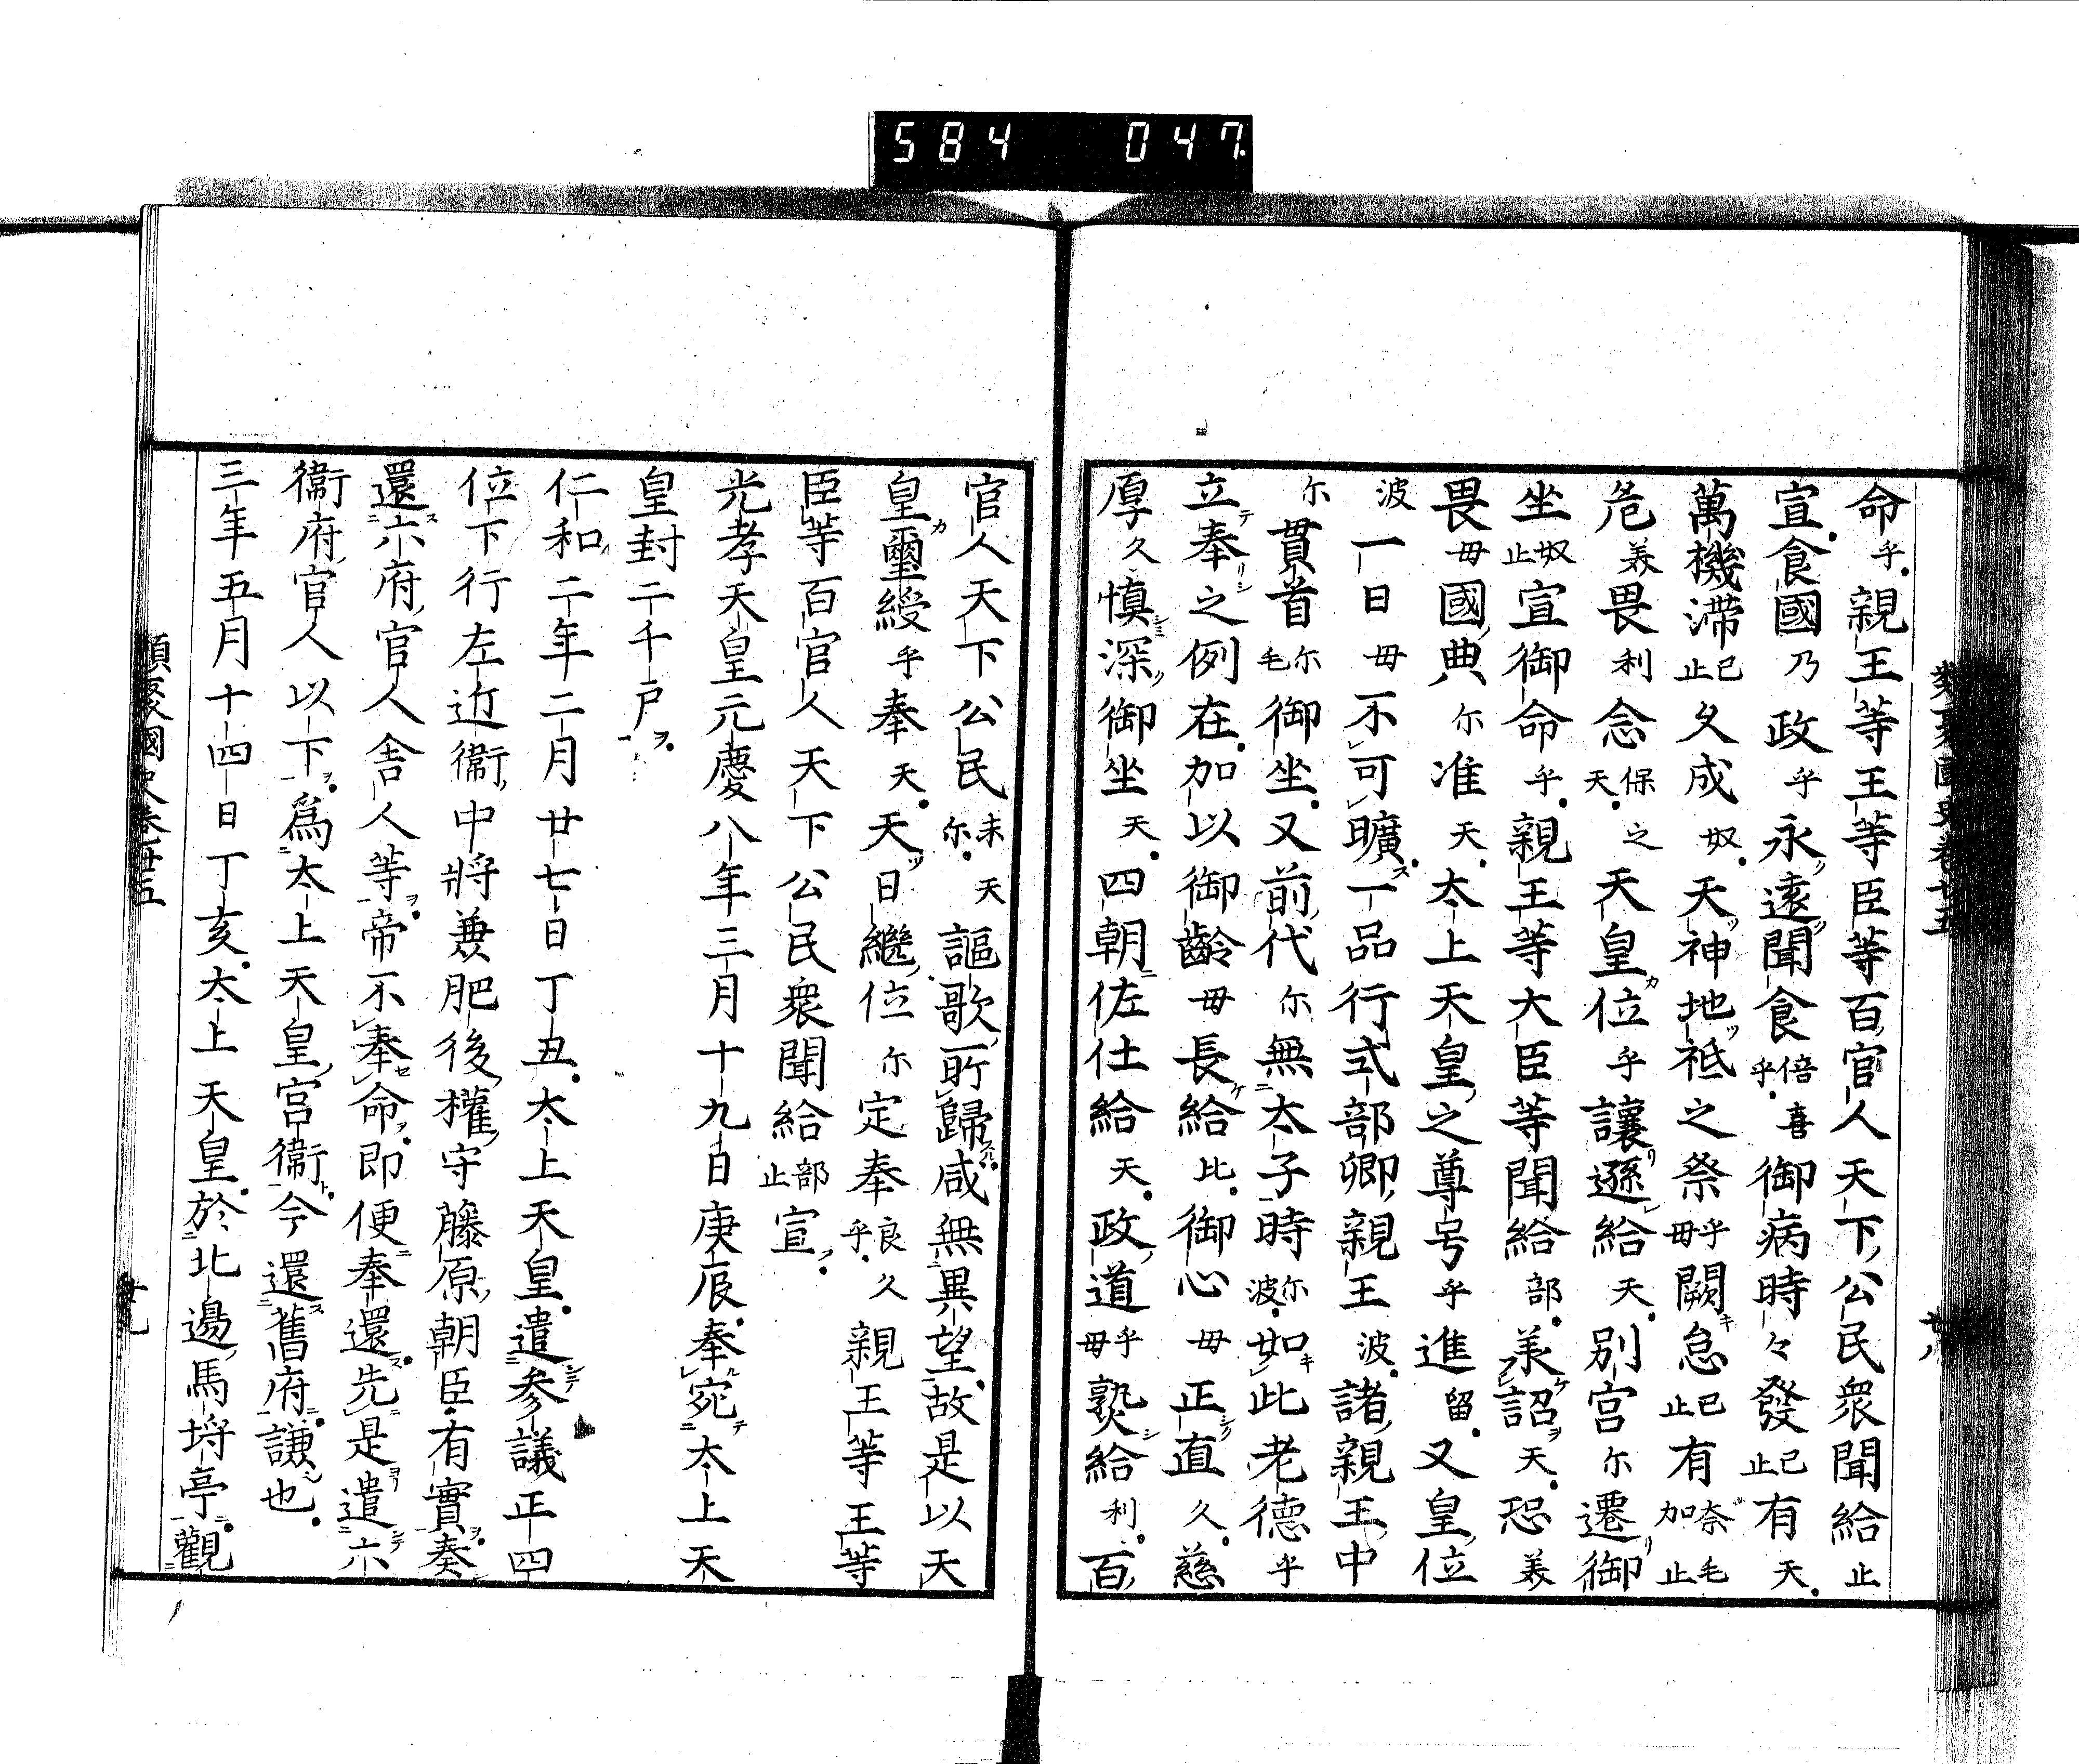 584 047
類聚國史卷廿五
廿八
命乎親王等王等臣等百官人天下公民衆聞給止
宣食國乃政乎永遠聞食倍喜乎御病時々發己止有天
萬機滯己止久成奴天神地祇之祭乎毋闕怠己止有奈毛加止
危美畏利念保天之天皇位乎讓遜給天別宮尓遷御
坐奴止宣御命乎親王等大臣等聞給部羕詔天恐美
畏毋國典尓准天太上天皇之尊号乎進留又皇位
波一日毋不可曠一品行式部卿親王波諸親王中
尓貫首尓毛御坐又前代尓無太子時尓波如此老德乎
立奉之例在加以御齡毋長給比御心毋正直久慈
厚久慎深御坐天四朝佐仕給天政道乎毋熟給利百
官人天下公民未天尓謳歌所歸咸無異望故是以天
皇璽綬乎奉天天日繼位尓定奉良久乎親王等王等
臣等百官人天下公民衆聞給部止宣
光孝天皇元慶八年三月十九日庚辰奉宛太上天
皇封二千戶
仁和二年二月廿七日丁丑太上天皇遣參議正四
位下行左近衞中將兼肥後權守藤原朝臣有實奏
還六府官人舍人等帝不奉命即便奉還先是遣六
衞府官人以下爲太上天皇宮衞今還舊府謙也
三年五月十四日丁亥太上天皇於北邊馬埒亭觀
類聚國史卷廿五
廿九